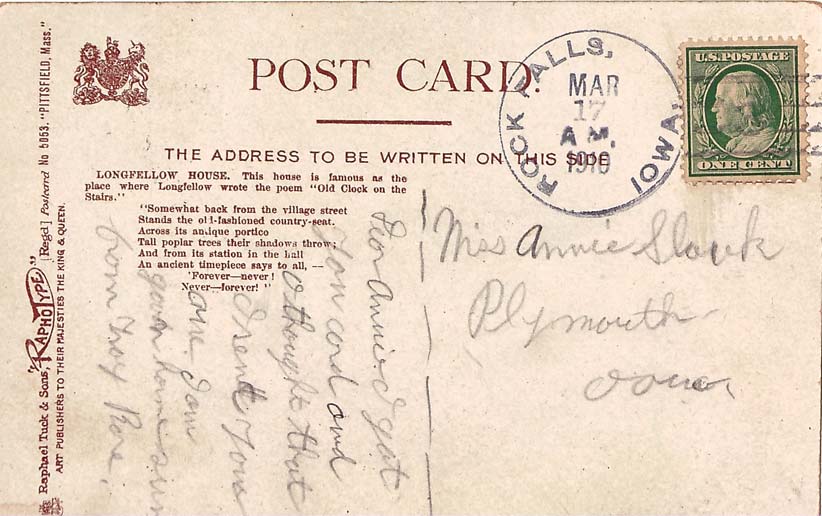 POST CARD.
THE ADDRESS TO BE WRITTEN ON THIS SIDE
ROCK FALLS, IOWA
MAR
17
A M.
1910
U.S. POSTAGE
ONE CENT
LONGFELLOW HOUSE. This house is famous as the
place where Longfellow wrote the poem "Old Clock on the
Stairs."
"Somewhat back from the village street
Stands the old-fashioned country-seat.
Across its antique portico
Tall poplar trees their shadows throw;
And from its station in the hall
An ancient timepiece says to all, —
'Forever—never!
Never—forever!'"
Raphael Tuck & Sons, "RAPHOTYPE" [Regd] Postcard No 5053. "PITTSFIELD, Mass."
ART PUBLISHERS TO THEIR MAJESTIES THE KING & QUEEN.
Miss Annie
Plymouth
Iowa
Annie. I got
card and
thought that
I sent you
one I am
home
from